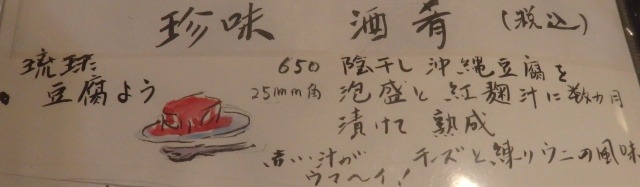 珍味 酒肴 (税込)
琉球
豆腐よう
650
25mm角
陰干し沖縄豆腐を
泡盛と紅麹汁に数カ月
漬けて熟成
チーズと練りウニの風味
赤い汁が
ウマ〜イ!